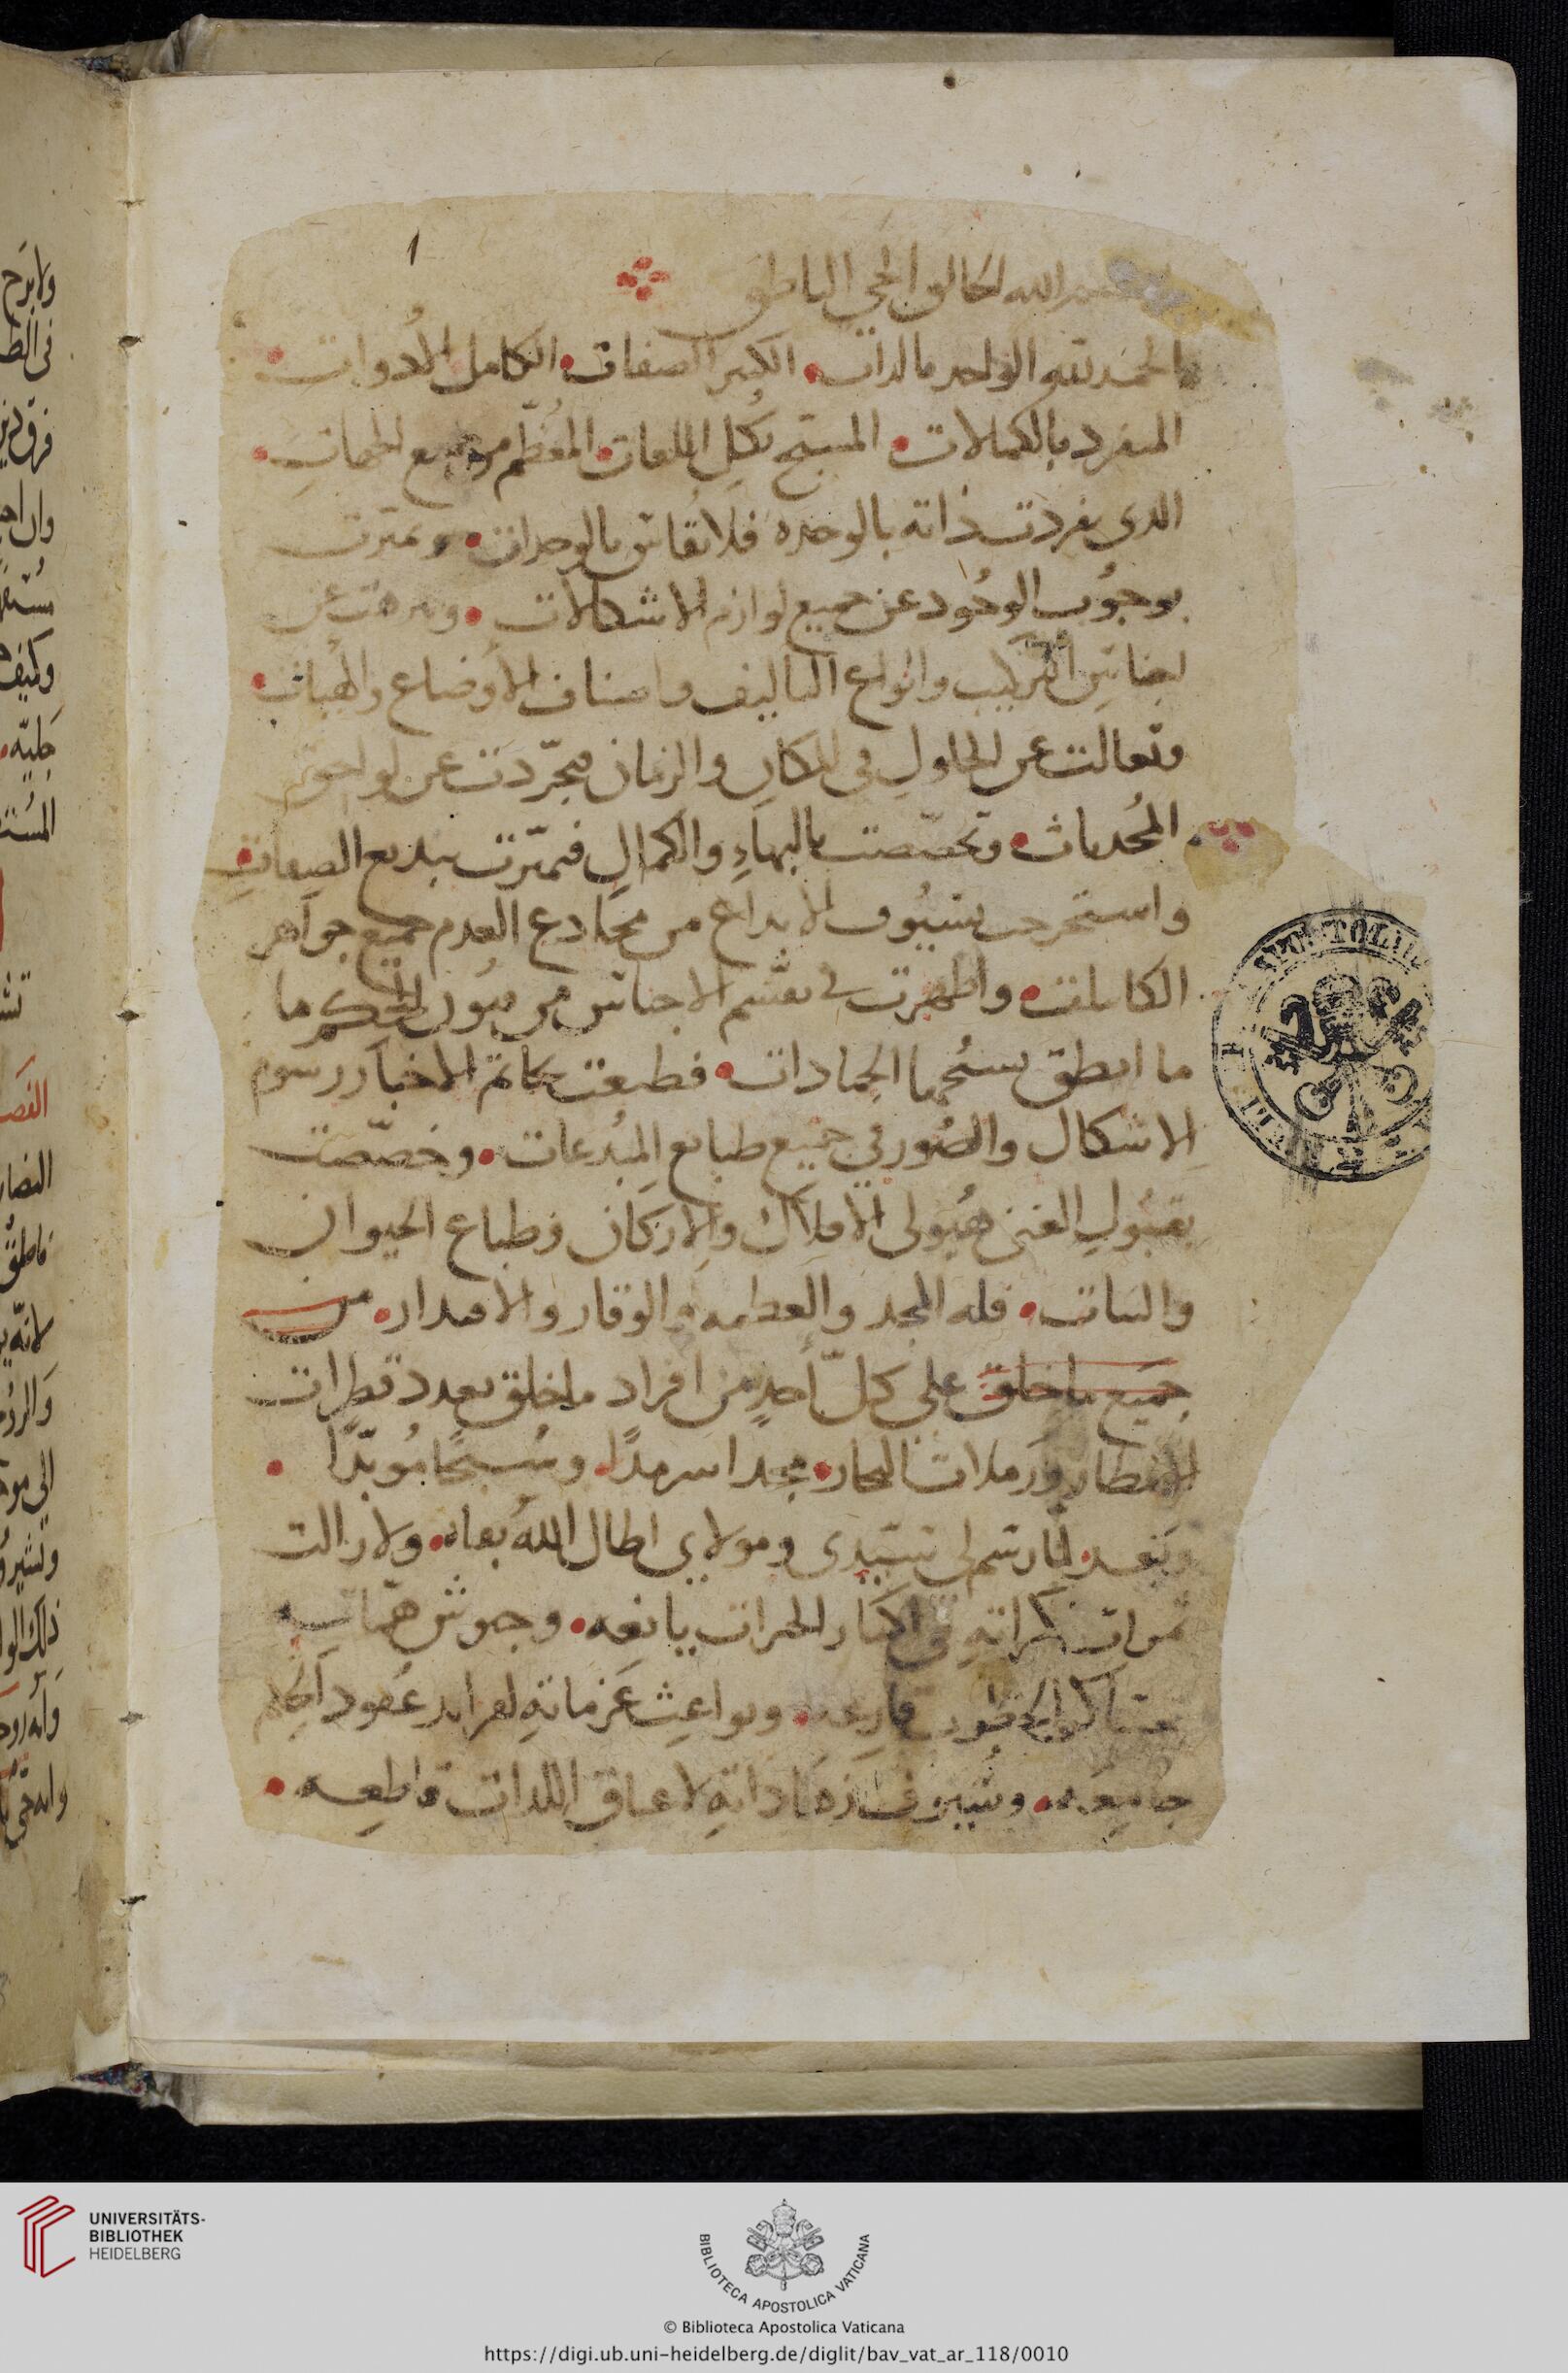 بسم الله الخالق الحي الناطق
الحمد لله الواحد بالذات الكثير الصفات الكامل الأدوات
المنفرد بالكمالات المسبح بكل اللغات المعظم من جميع الجهات
الدي تفردت ذاته بالوحده فلا تقاس بالوحدات وتميزت
بوجوب الوجود عن جميع لوازم الاشكالات وتنزهت عن
اجناس التركيب وانواع التاليف واصناف الأوضاع والهيات
وتعالت عن الحلول في المكان والزمان فتجرّدت عن لواحق
المحدثات وتخصّصت بالبهاء والكمال فتميّزت ببديع الصفات
واستخرجت بسيوف الابداع من مخادع العدم جميع جواهر
الكاينات واظهرت في تقسم الاجناس من فنون الحكم ما
ما انطق بسبحها الجمادات فطبعت بخاتم الاختبار رسوم
الاشكال والصور في جميع طبايع المبدعات وخصّصت
بقبول هيولى الافلاك والاركان وطباع الحيوان
والنبات فله المجد والعظمه والوقار والاقتدار من
جميع ما خلق على كلّ أحدٍ من افراد ما خلق بعدد قطرات
الامطار ورملات البحار مجدا سرمدًا وسبحًا مؤبّدًا
وبعد لمّا رسم لي سيدي ومولاي اطال الله بقاه ولا زالت
ثمرات في الخيرات يانعه وجيوش همّات
قارعه وبواعث عزماته لفرايد عقود الحكم
جامعه وسيوف زهاداته لاعناق اللدات قاطعه
1
UNIVERSITÄTS-
BIBLIOTHEK
HEIDELBERG
BIBLIOTECA APOSTOLICA VATICANA
© Biblioteca Apostolica Vaticana
https://digi.ub.uni-heidelberg.de/diglit/bav_vat_ar_118/0010